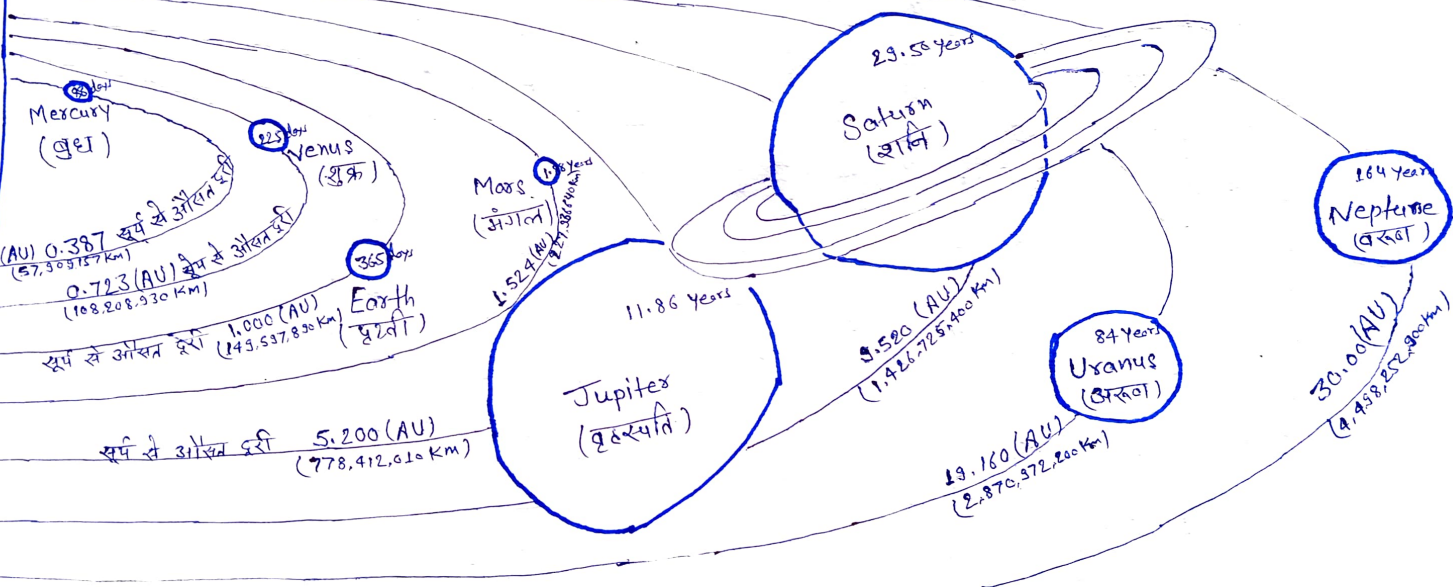 88 days
Mercury
(बुध)
(AU) 0.387 सूर्य से औसत दूरी
(57,909,157 Km)
225 days
Venus
(शुक्र)
0.723 (AU) सूर्य से औसत दूरी
(108,208,930 KM)
365 days
Earth
(पृथ्वी)
सूर्य से औसत दूरी 1.000 (AU)
(149,597,890 Km)
1.88 Years
Mars
(मंगल)
1.524 (AU)
11.86 Years
Jupiter
(बृहस्पति)
सूर्य से औसत दूरी 5.200 (AU)
(778,412,010 Km)
Saturn
(शनि)
9.520 (AU)
(1,426,725,400 Km)
84 Years
Uranus
(अरूण)
19.160 (AU)
(2,870,972,200 Km)
164 Years
Neptune
(वरूण)
30.00 (AU)
(4,498,252,900 Km)